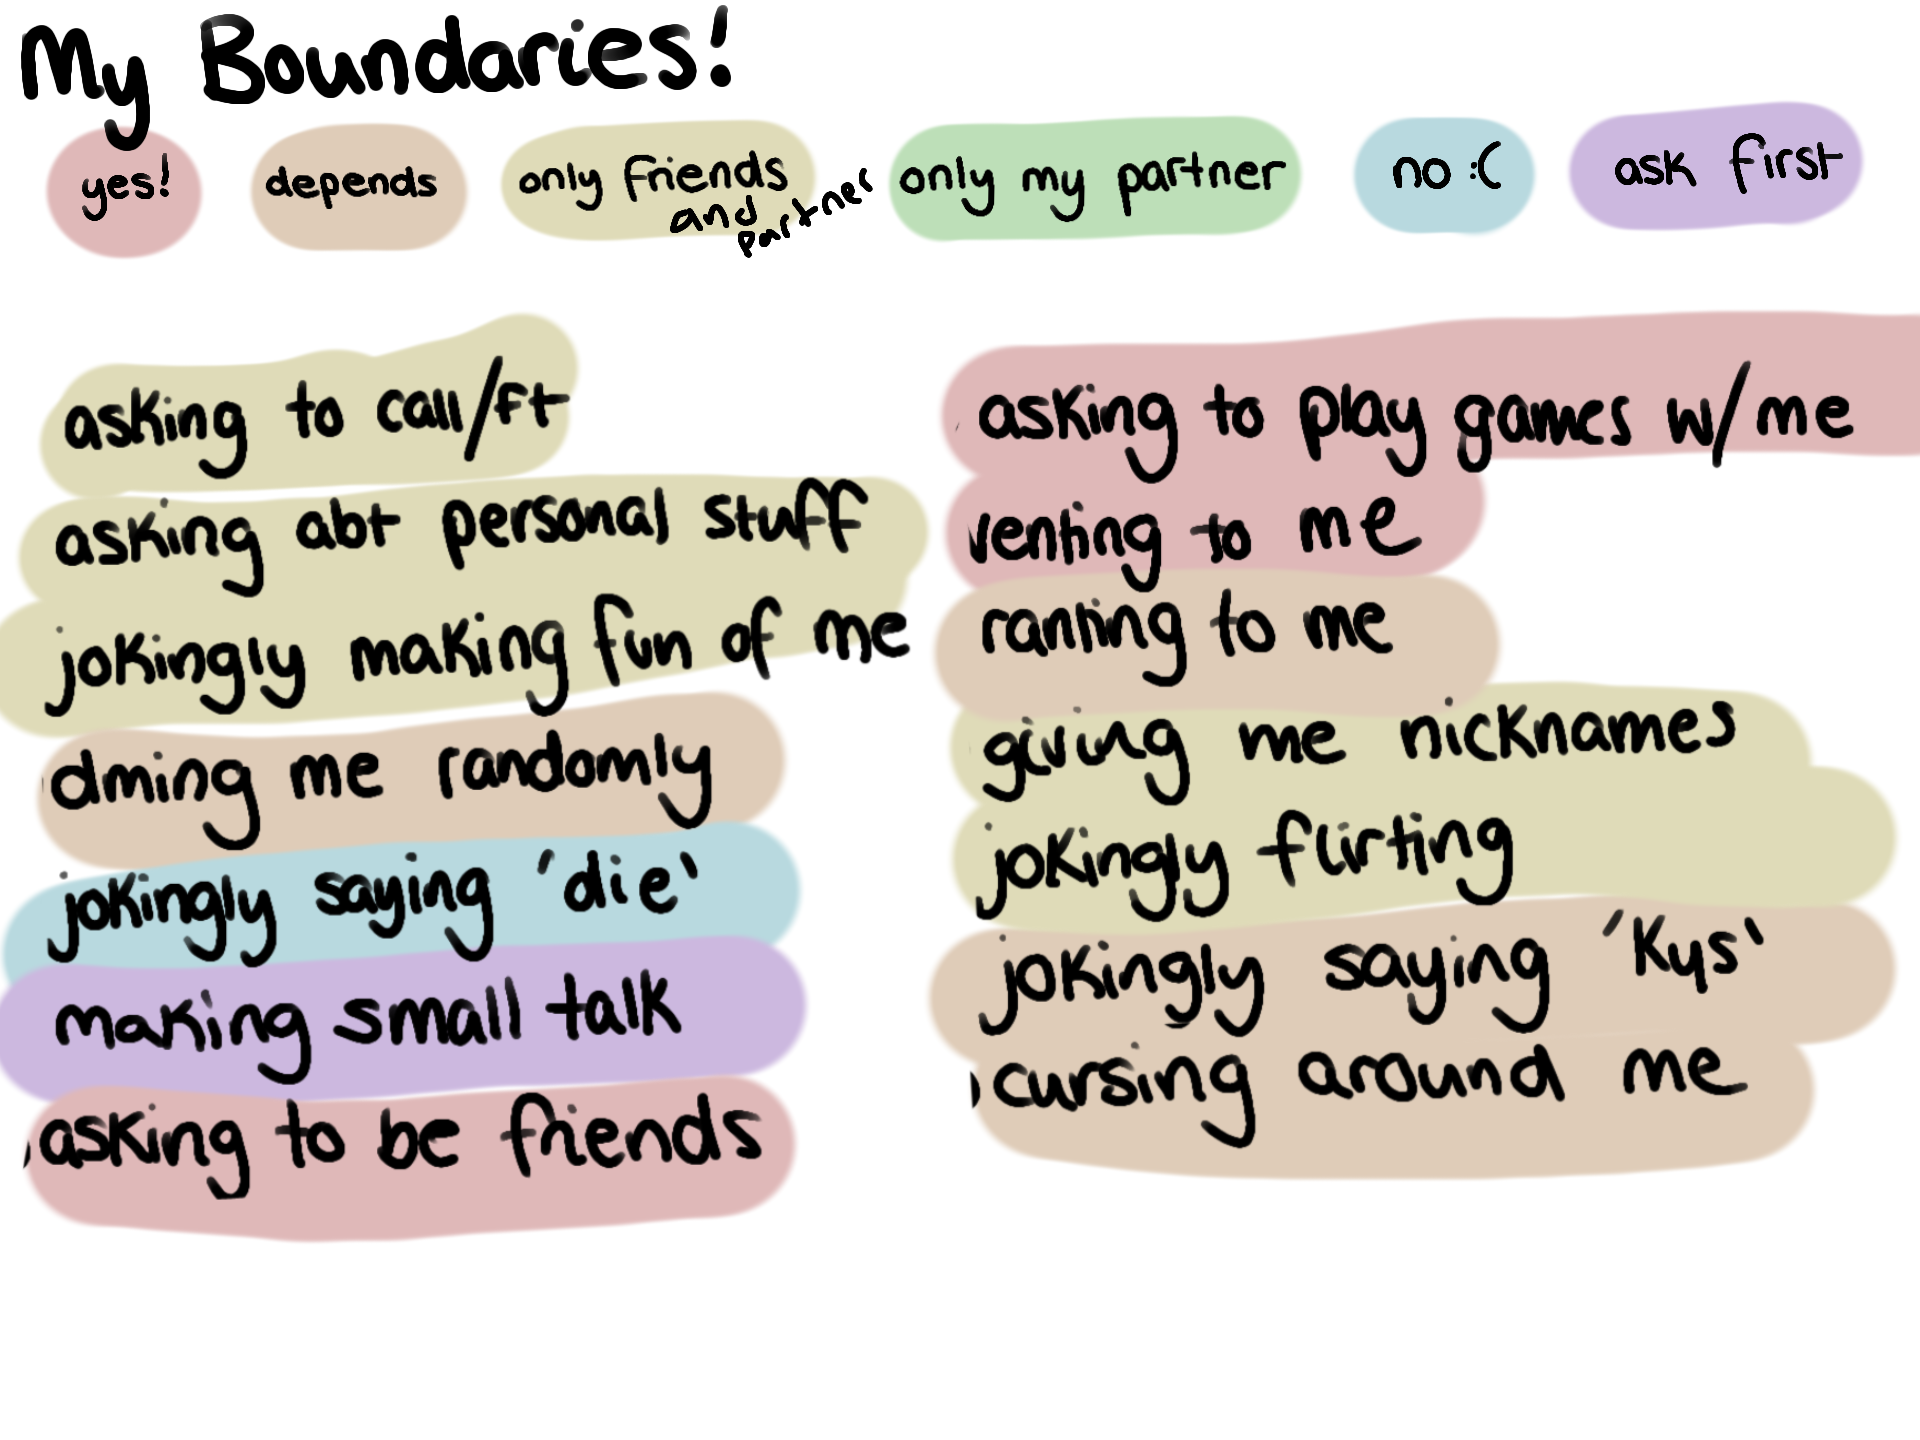 My Boundaries!
yes!
depends
only friends
and
partner
only my partner
no :(
ask first
asking to call/ft
asking abt personal stuff
jokingly making fun of me
dming me randomly
jokingly saying 'die'
making small talk
asking to be friends
asking to play games w/me
venting to me
ranting to me
giving me nicknames
jokingly flirting
jokingly saying 'kys'
cursing around me